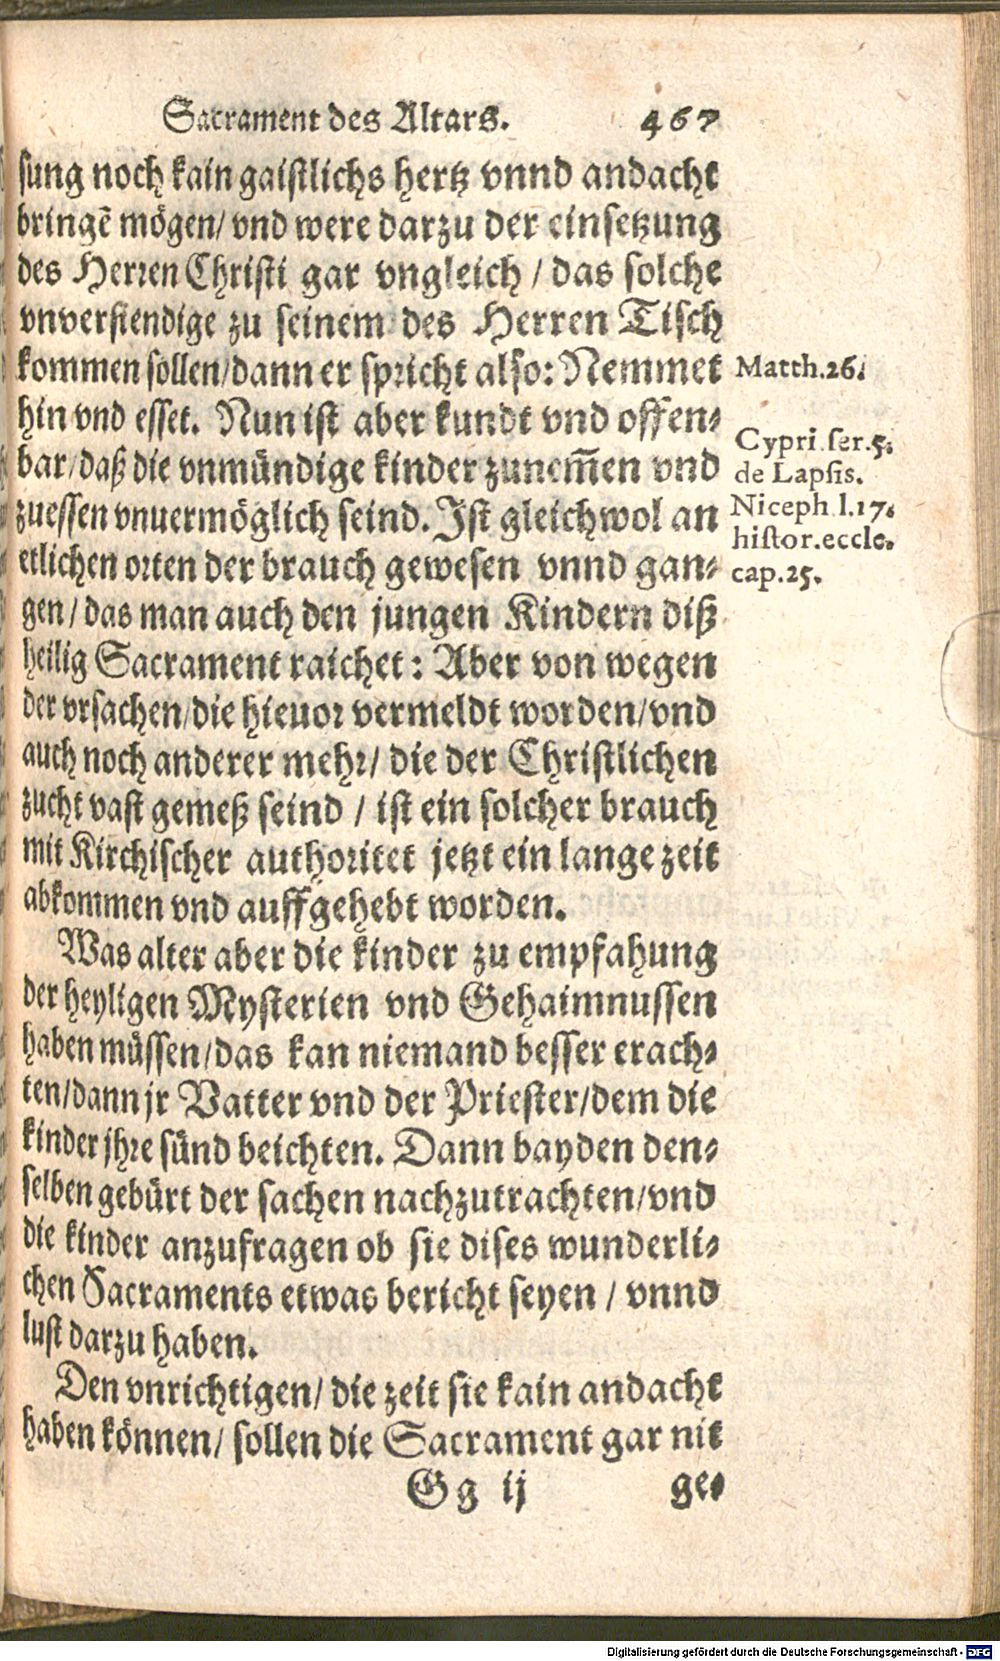 Sacrament des Altars. 467
sung noch kain gaistlichs hertz vnnd andacht
bringē mögen/ vnd were darzu der einsetzung
des Herren Christi gar vngleich / das solche
vnverstendige zu seinem des Herren Tisch
kommen sollen/dann er spricht also: Nemmet
Matth.26.
hin vnd esset. Nun ist aber kundt vnd offen-
bar/daß die vnmündige kinder zunem̃en vnd
zuessen vnuermöglich seind. Ist gleichwol an
Cypri.ser.5.
de Lapsis.
Niceph l.17.
histor.eccle.
cap.25.
etlichen orten der brauch gewesen vnnd gan-
gen/ das man auch den jungen Kindern diß
heilig Sacrament raichet: Aber von wegen
der vrsachen/die hieuor vermeldt worden/vnd
auch noch anderer mehr/ die der Christlichen
zucht vast gemeß seind / ist ein solcher brauch
mit Kirchischer authoritet jetzt ein lange zeit
abkommen vnd auffgehebt worden.
Was alter aber die kinder zu empfahung
der heyligen Mysterien vnd Gehaimnussen
haben müssen/das kan niemand besser erach-
ten/dann jr Vatter vnd der Priester/dem die
kinder jhre sünd beichten. Dann bayden den-
selben gebürt der sachen nachzutrachten/vnd
die kinder anzufragen ob sie dises wunderli-
chen Sacraments etwas bericht seyen / vnnd
lust darzu haben.
Den vnrichtigen/ die zeit sie kain andacht
haben können/ sollen die Sacrament gar nit
Gg ij ge-
Digitalisierung gefördert durch die Deutsche Forschungsgemeinschaft - DFG